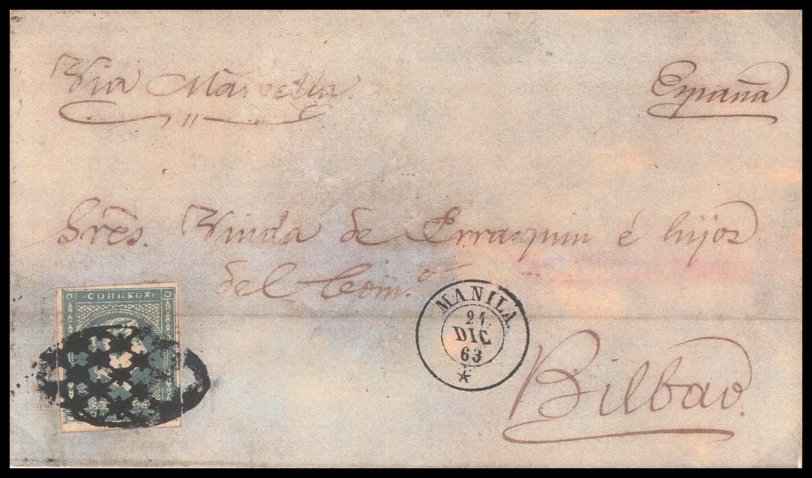 Via Marsella.
España
Sres. Viuda de Errazquin é hijos
del Com.o
CORREOS
MANILA.
21
DIC
63
Bilbao.